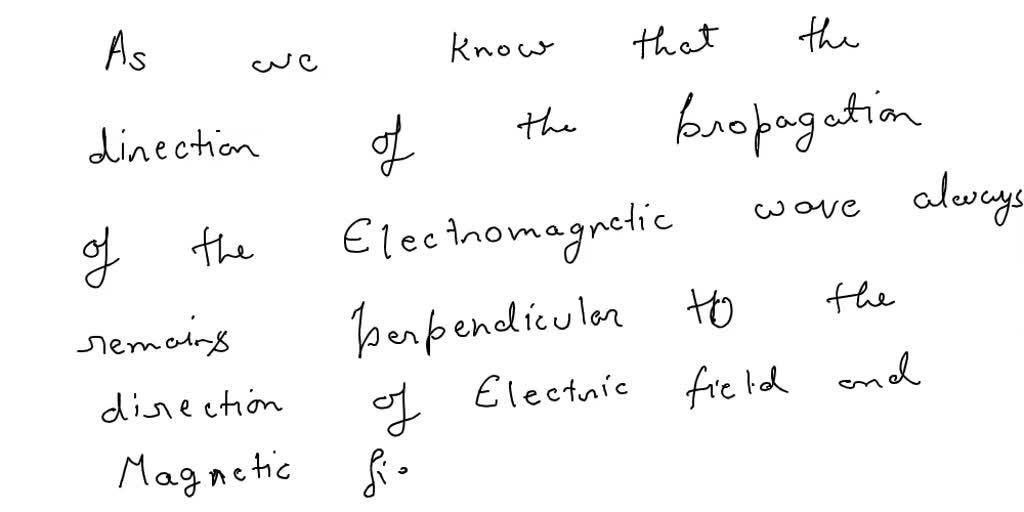 As we know that the
direction of the propagation
of the Electromagnetic wave always
remains perpendicular to the
direction of Electric field and
Magnetic fi.